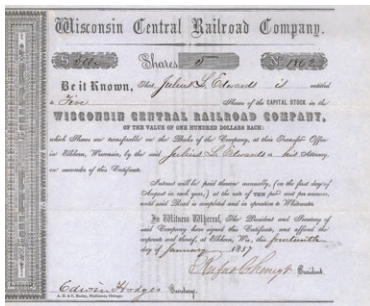 Wisconsin Central Railroad Company.
$ 500 Shares 5 No. 1862
Be it Known, That Julius L. Edwards is entitled
to Five Shares of the CAPITAL STOCK in the
WISCONSIN CENTRAL RAILROAD COMPANY,
OF THE VALUE OF ONE HUNDRED DOLLARS EACH:
which Shares are transferable on the Books of the Company, at their Transfer Office
in Elkhorn, Wisconsin, by the said Julius L. Edwards or his Attorney,
on surrender of this Certificate.
Interest will be paid thereon annually, (on the first day of
August in each year,) at the rate of TEN per cent per annum,
until said Road is completed and in operation to Whitewater.
In Witness Whereof, The President and Secretary of
said Company have signed this Certificate, and affixed the
corporate seal hereof, at Elkhorn, Wis., this fourteenth
day of January 1857
Rufus Cheney Jr President.
Edwin Hodges Secretary.